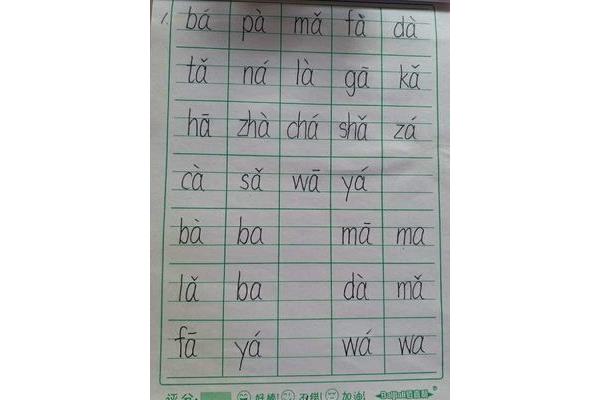 1. bá pà mǎ fǎ dà
tǎ ná là gā kǎ
hā zhà chá shǎ zá
cà sǎ wā yá
bà ba mā ma
lǎ ba dà mǎ
fā yá wá wa
评分: 好棒! 不错! 加油!